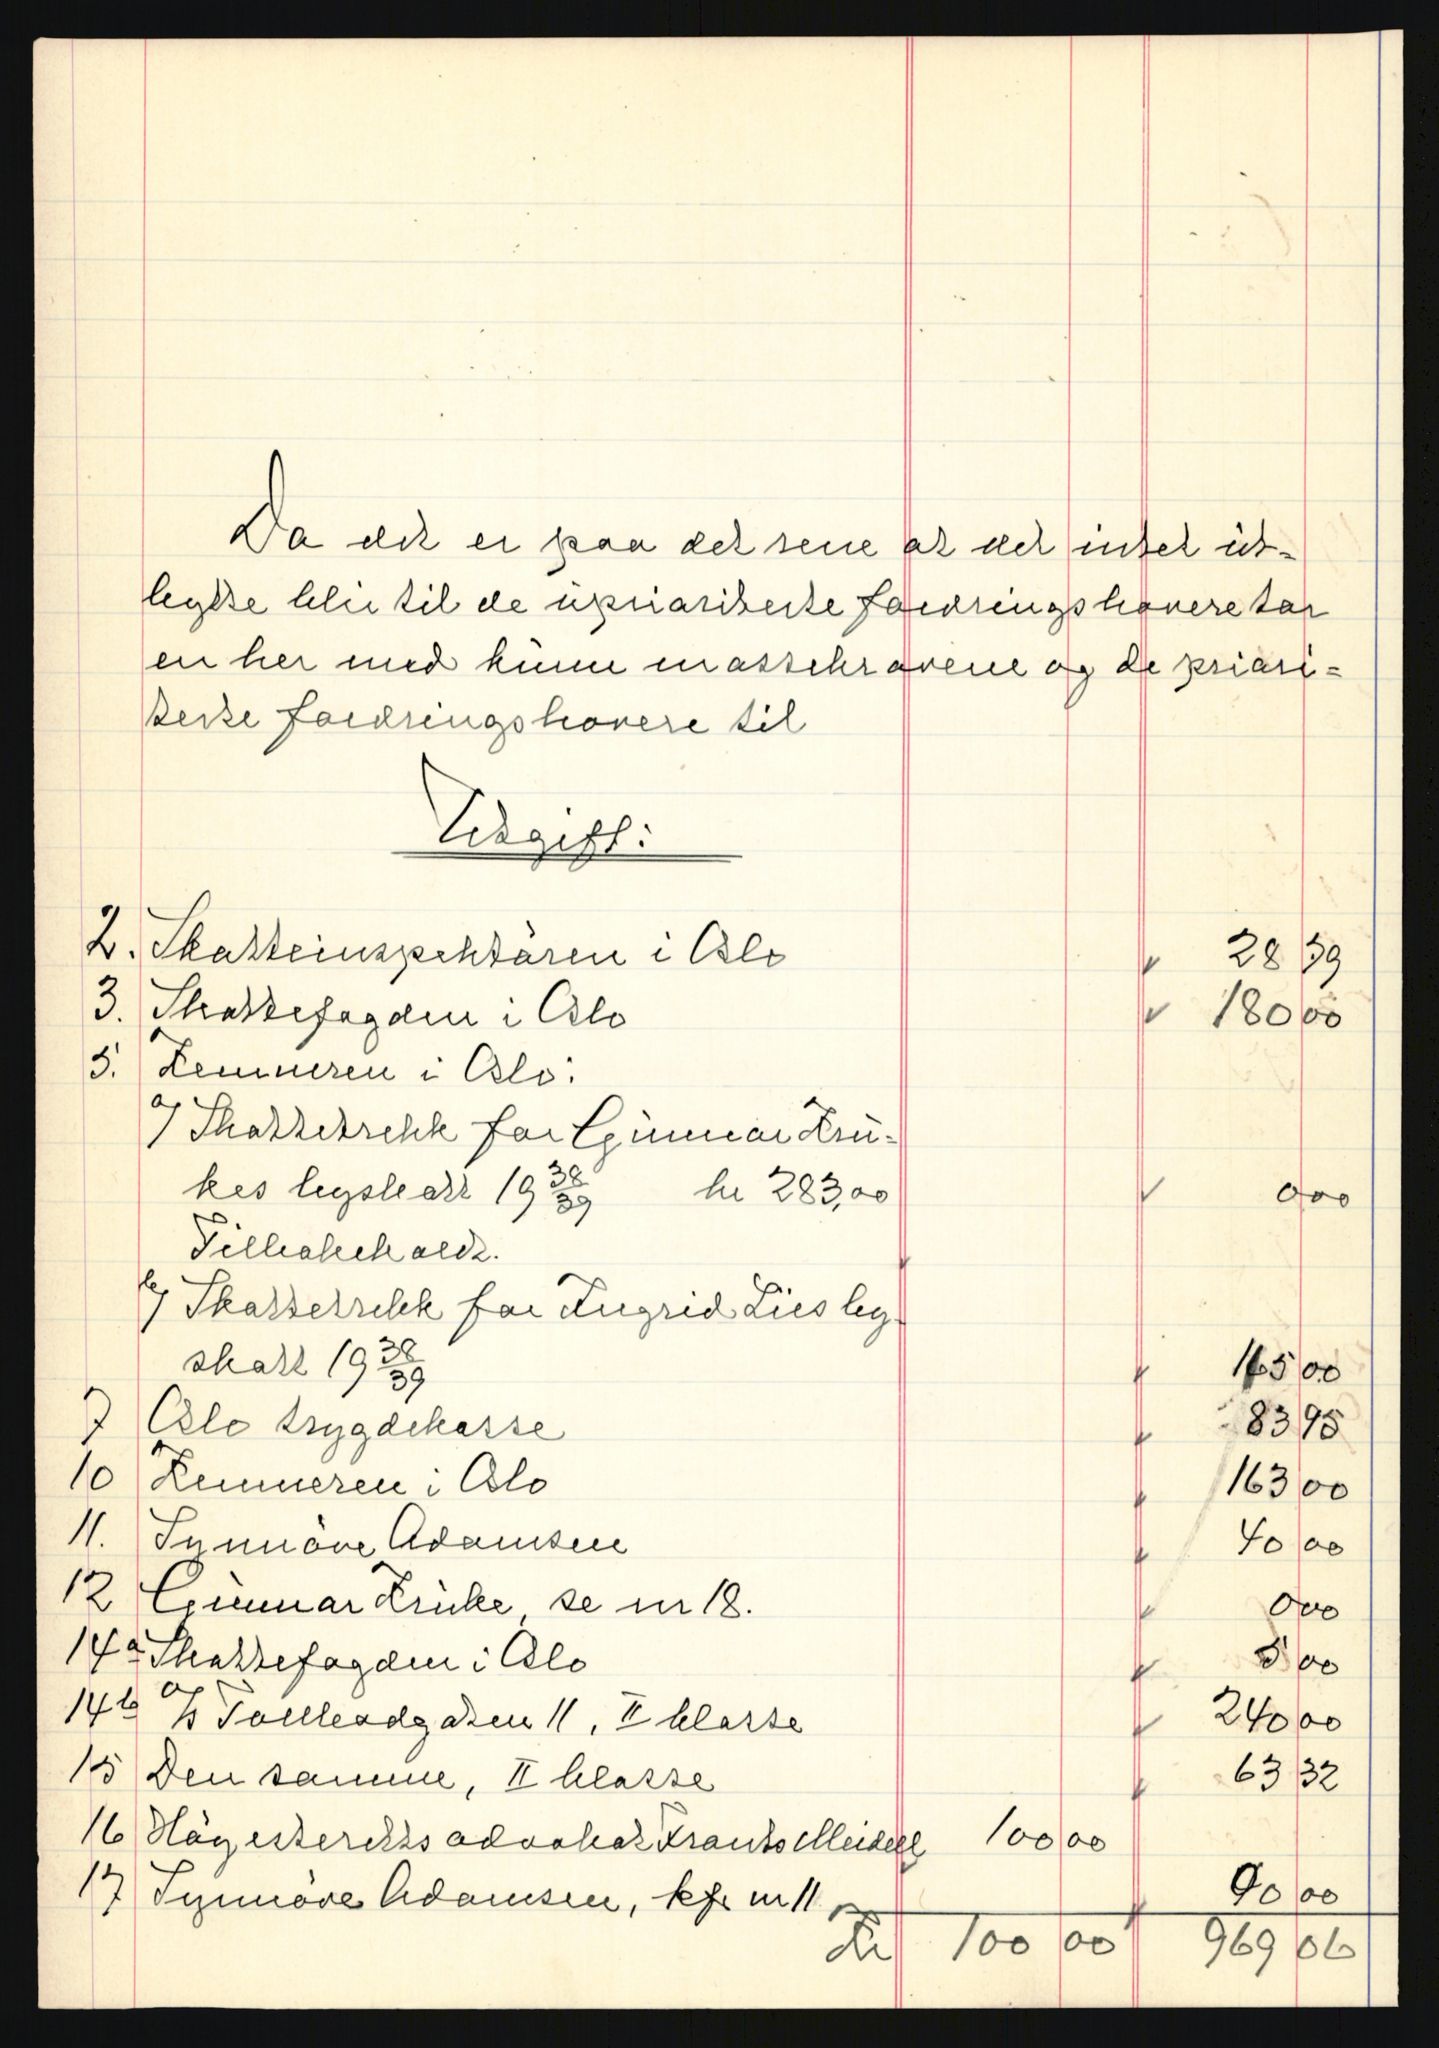 Da det er paa det rene at det intet ut-
bytte blir til de upriariterte fordringshavere tar
en her med kunn massekravene og de priari-
terte fordringshavere til
Utgift:
2. Skatteinspektören i Oslo 28 39
3. Skattefogden i Oslo 180 00
5. Kemneren i Oslo:
a/ Skattetrekk for Gunnar Kru-
kes byskatt 19 38/39 kr 283,00 0 00
Tilbakekaldt.
b/ Skattetrekk for Ingrid Lies by-
skatt 19 38/39 165 00
7 Oslo trygdekasse 83 95
10 Kemneren i Oslo 163 00
11. Synnöve Adamsen 40 00
12 Gunnar Kruke, se nr 18. 0 00
14a Skattefogden i Oslo 5 00
14b a/s Tollbodgaten 11, II klasse 240 00
15 Den samme, II klasse 63 32
16 Höyesterettsadvokat Frants Meidell 100 00
17 Synnöve Adamsen, kfr nr 11 00
Kr 100 00 969 06